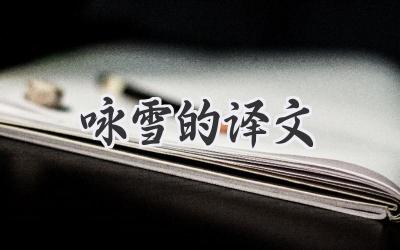 咏雪的译文